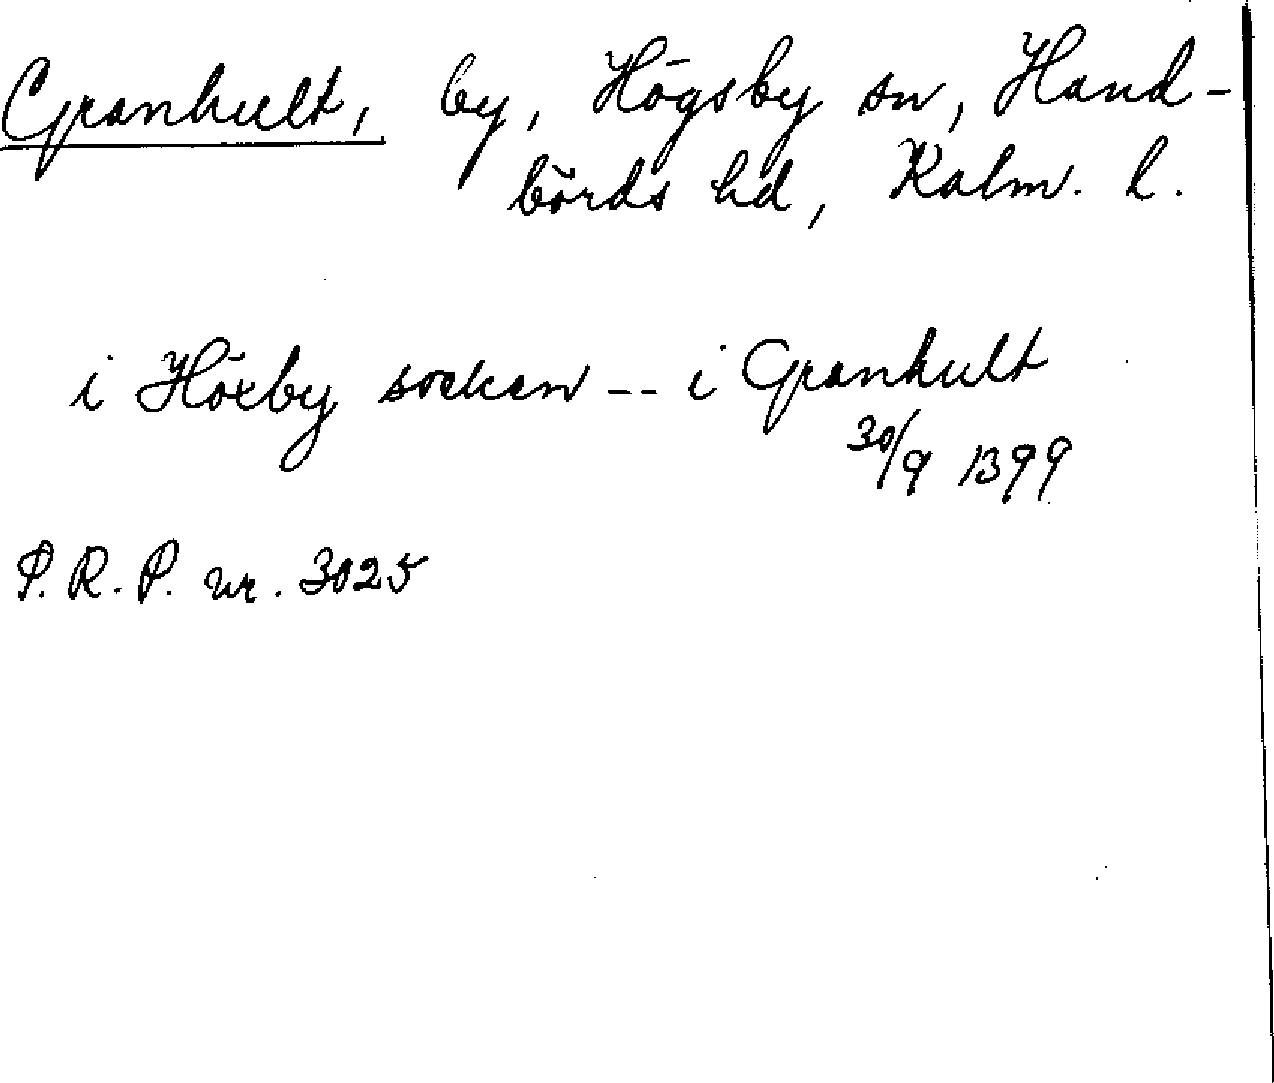 Granhult, by, Högsby sn, Hand-
börds hd, Kalm. l.
i Höxby soeken -- i Granhult
30/9 1399
P.R.P. nr. 3025